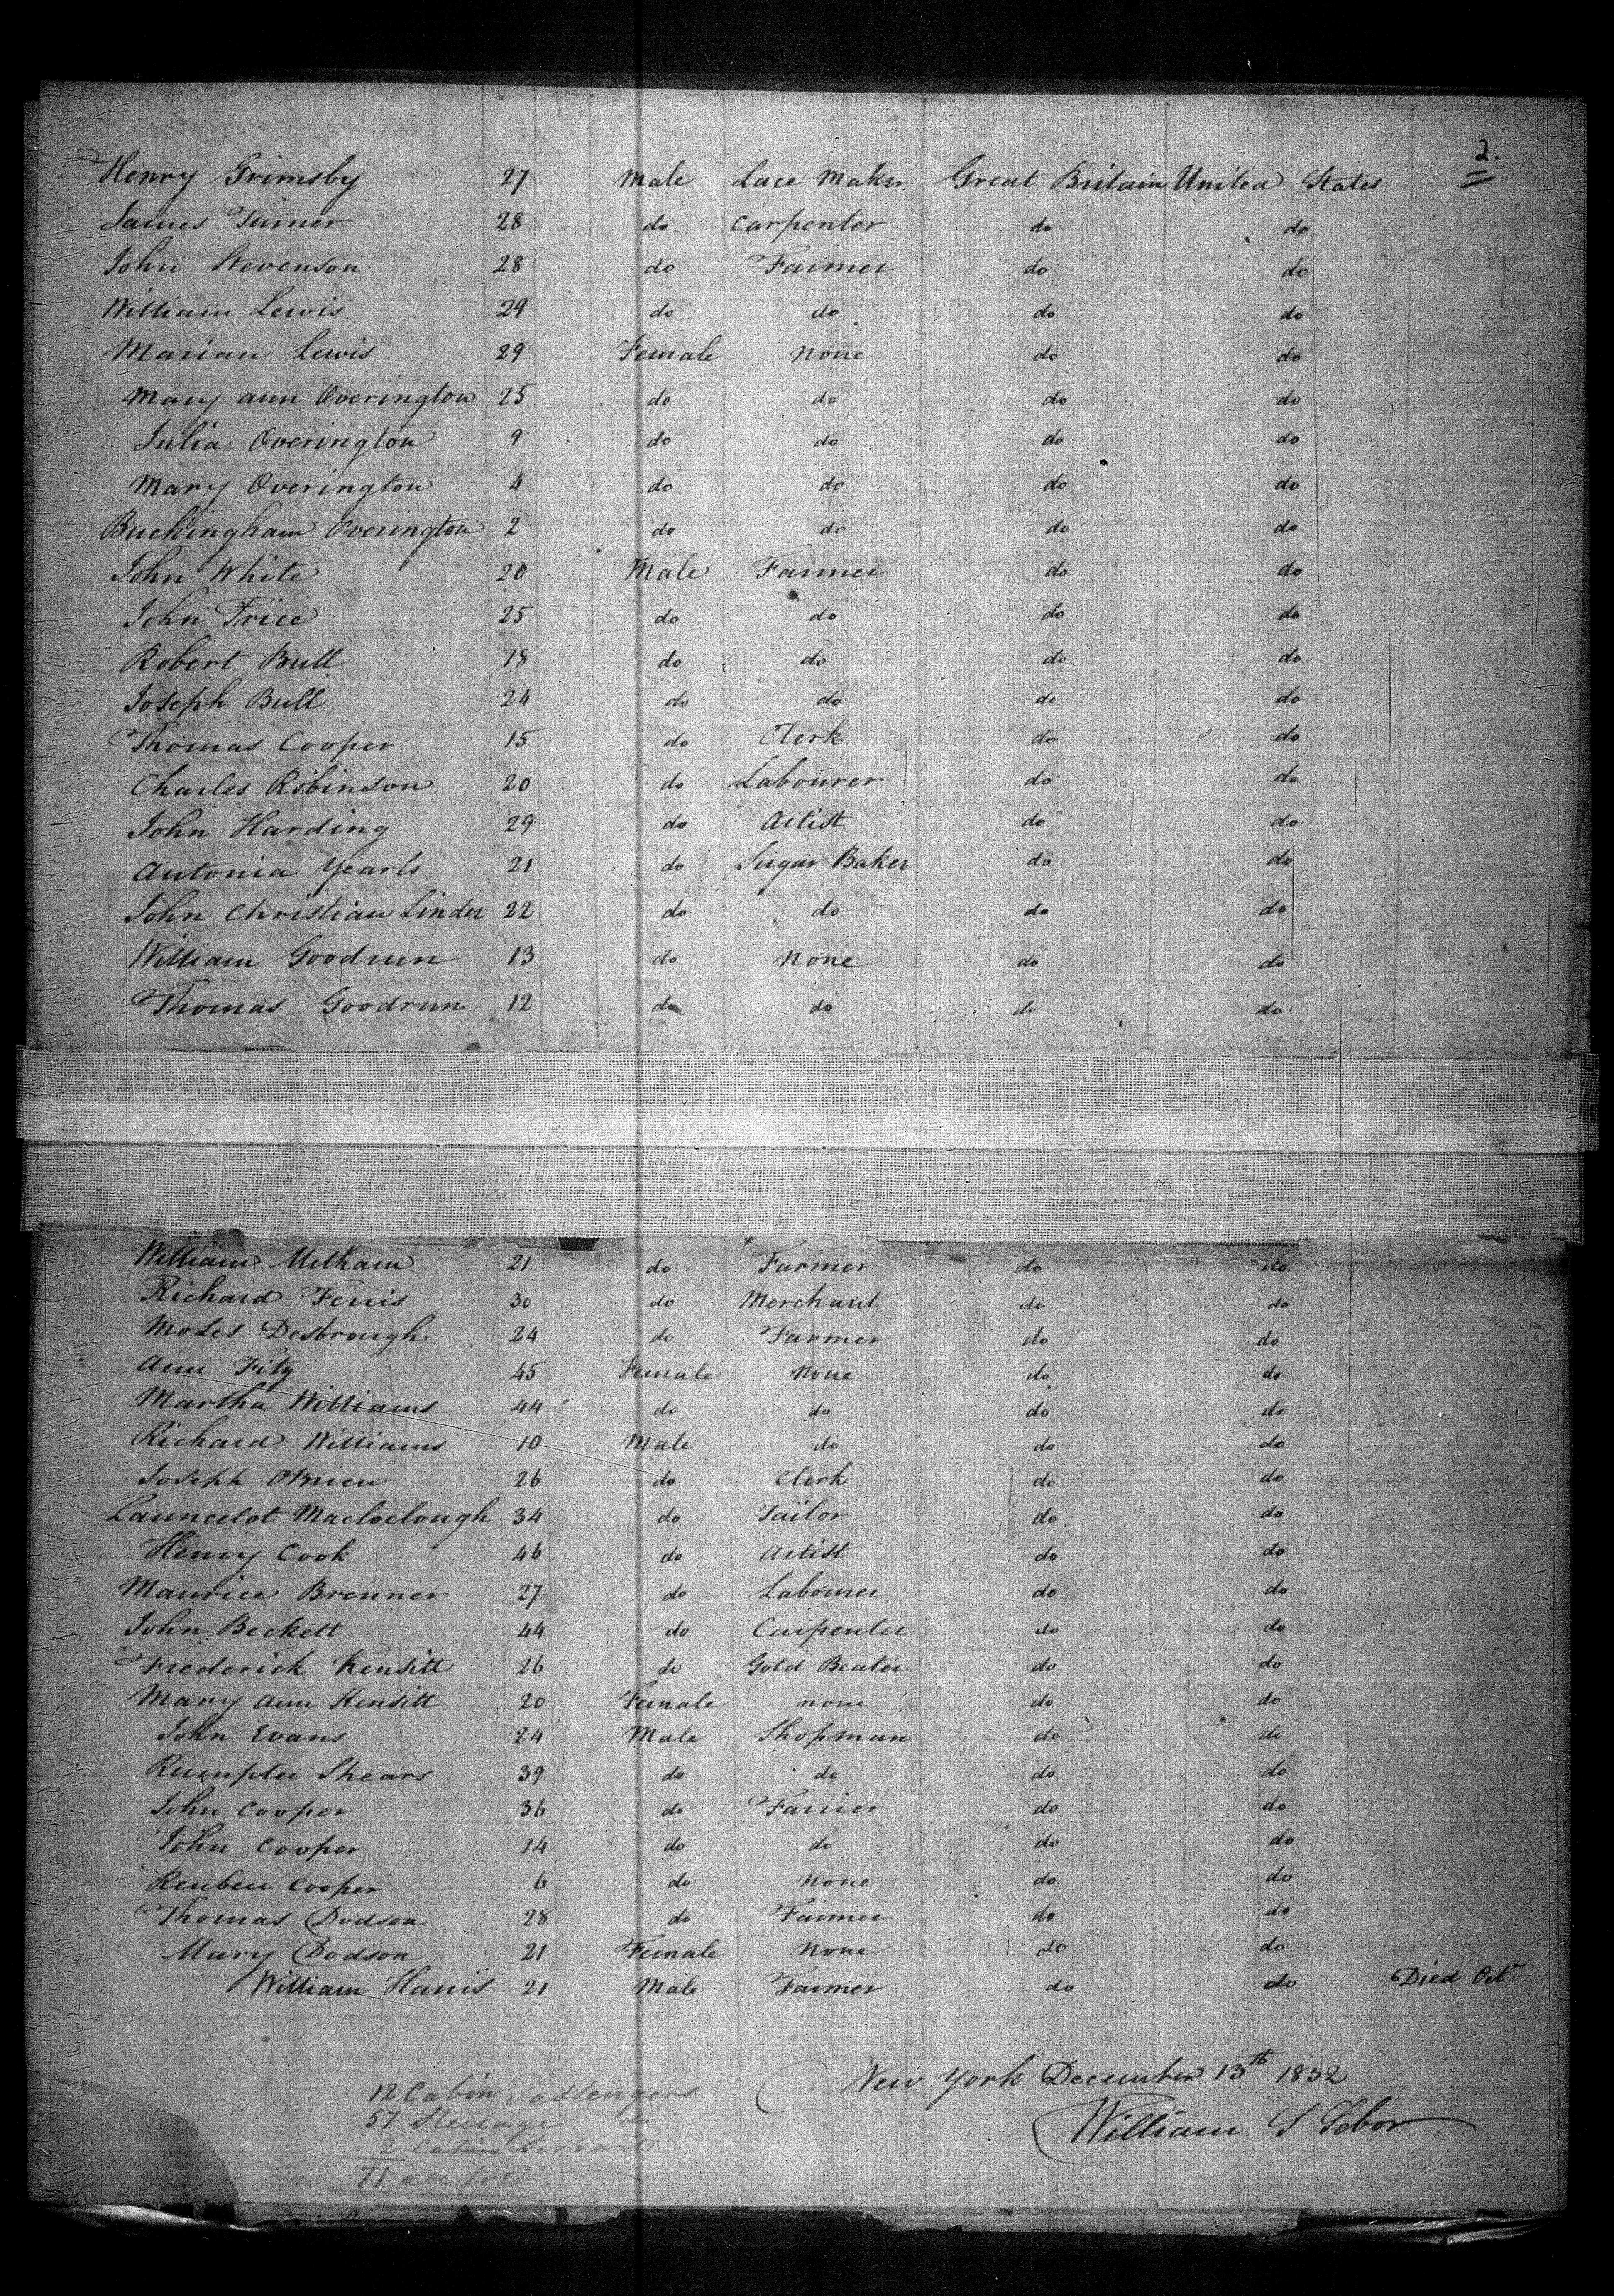 2.
Henry Grimsby 27 Male Lace Maker Great Britain United States
James Turner 28 do Carpenter do do
John Stevenson 28 do Farmer do do
William Lewis 29 do do do do
Marian Lewis 29 Female None do do
Mary ann Overington 25 do do do do
Julia Overington 9 do do do do
Mary Overington 4 do do do do
Buckingham Overington 2 do do do do
John White 20 Male Farmer do do
John Price 25 do do do do
Robert Bull 18 do do do do
Joseph Bull 24 do do do do
Thomas Cooper 15 do Clerk do do
Charles Robinson 20 do Labourer do do
John Harding 29 do Artist do do
Antonia Yearls 21 do Sugar Baker do do
John Christian Linder 22 do do do do
William Goodrun 13 do None do do
Thomas Goodrun 12 do do do do
William Mitham 21 do Farmer do do
Richard Ferris 30 do Merchant do do
Moses Desbrough 24 do Farmer do do
Ann Fitz 45 Female None do do
Martha Williams 44 do do do do
Richard Williams 10 Male do do do
Joseph OBrien 26 do Clerk do do
Launcelot Macloclough 34 do Tailor do do
Henry Cook 46 do Artist do do
Maurice Brenner 27 do Labourer do do
John Beckett 44 do Carpenter do do
Frederick Kensitt 26 do Gold Beater do do
Mary Ann Kensitt 20 Female none do do
John Evans 24 Male Shopman do do
Shears 39 do do do do
John Cooper 36 do Farrier do do
John Cooper 14 do do do do
Reuben Cooper 6 do None do do
Thomas Dodson 28 do Farmer do do
Mary Dodson 21 Female None do do
William Harris 21 Male Farmer do do Died Oct
New York December 13th 1832
William S Sebor
12 Cabin Passengers
57 Steerage do
2 Cabin Servants
71 all told